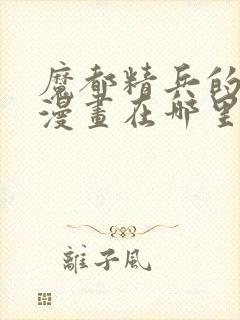 魔都精兵的
漫畫在哪里
離子風